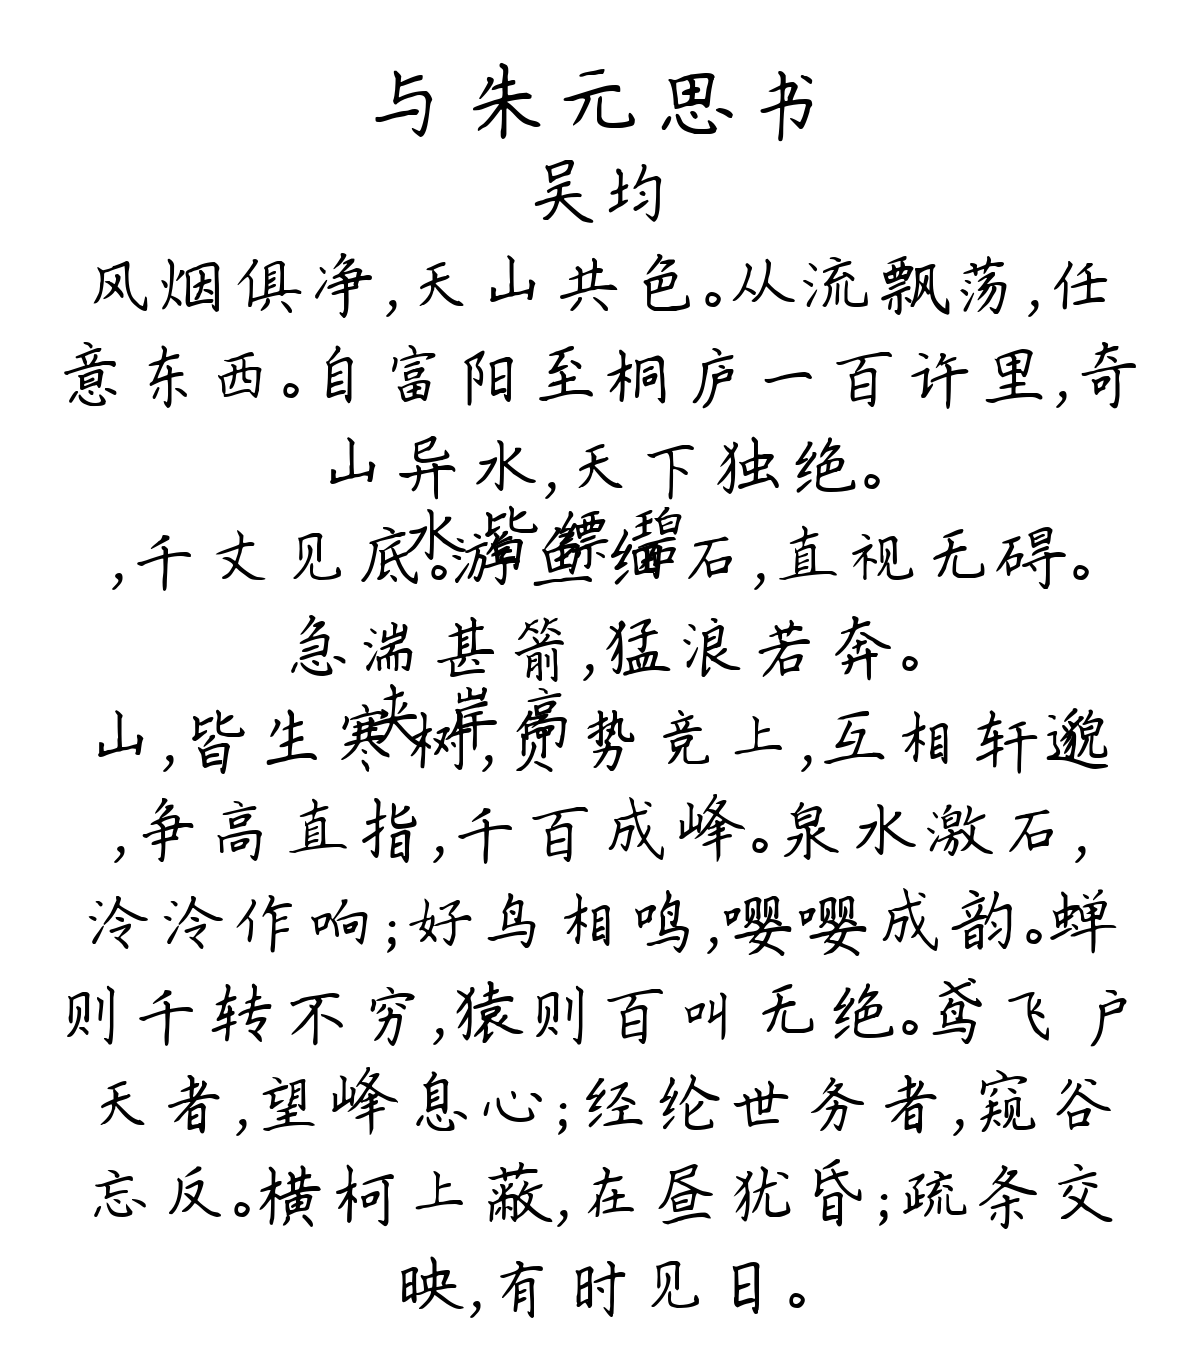 与朱元思书
吴均
风烟俱净,天山共色。从流飘荡,任
意东西。自富阳至桐庐一百许里,奇
山异水,天下独绝。
水皆缥碧
,千丈见底。游鱼细石,直视无碍。
急湍甚箭,猛浪若奔。
夹岸高
山,皆生寒树,负势竞上,互相轩邈
,争高直指,千百成峰。泉水激石,
泠泠作响;好鸟相鸣,嘤嘤成韵。蝉
则千转不穷,猿则百叫无绝。鸢飞户
天者,望峰息心;经纶世务者,窥谷
忘反。横柯上蔽,在昼犹昏;疏条交
映,有时见日。